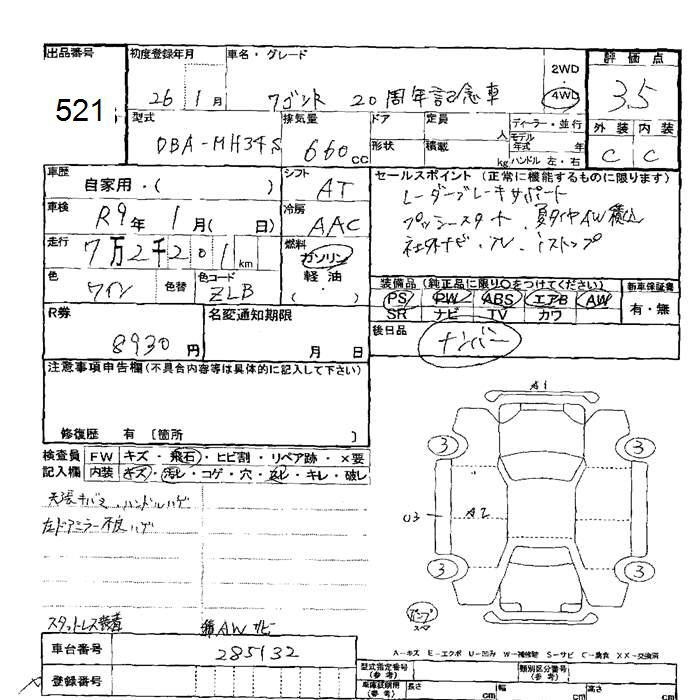 出品番号
521
初度登録年月
26 1月
車名・グレード
ワゴンR 20周年記念車
2WD
4WD
評価点
3.5
外装 内装
C C
型式
DBA-MH34S
排気量
660cc
ドア
定員
人
形状
積載
kg
ディーラー・並行
モデル年式 年
ハンドル 左・右
車歴
自家用・( )
シフト
AT
セールスポイント (正常に機能するものに限ります)
レーダーブレーキサポート
プッシースタート 夏タイヤAW積込
社外ナビ・TV・iストップ
車検
R9年 1月( 日)
冷房
AAC
走行
7万2千201km
燃料
ガソリン
軽・油
( )
色
ワイン
色替
色コード
ZLB
装備品 (純正品に限り○をつけてください)
PS PW ABS エアB AW
SR ナビ TV カワ
新車保証書
有・無
R券
8930円
名変通知期限
月 日
後日品
ナンバー
注意事項申告欄(不具合内容等は具体的に記入して下さい)
修復歴 有 〔箇所 〕
検査員記入欄
FW キズ・飛石・ヒビ割・リペア跡・×要
内装 キズ・汚レ・コゲ・穴・ネレ・キレ・破レ
天張キバミ、ハンドルハゲ
左ドアミラー不良ハゲ
スタットレス装着
AWサビ
A1
3 3
U3 A2
3 3
A-キズ E-エクボ U-凹み W-補修跡 S-サビ C-腐食 XX-交換済
車台番号
285132
登録番号
型式指定番号
(参考)
類別区分番号
(参考)
車庫証明用
(参考)
長さ
cm
幅
cm
高さ
cm